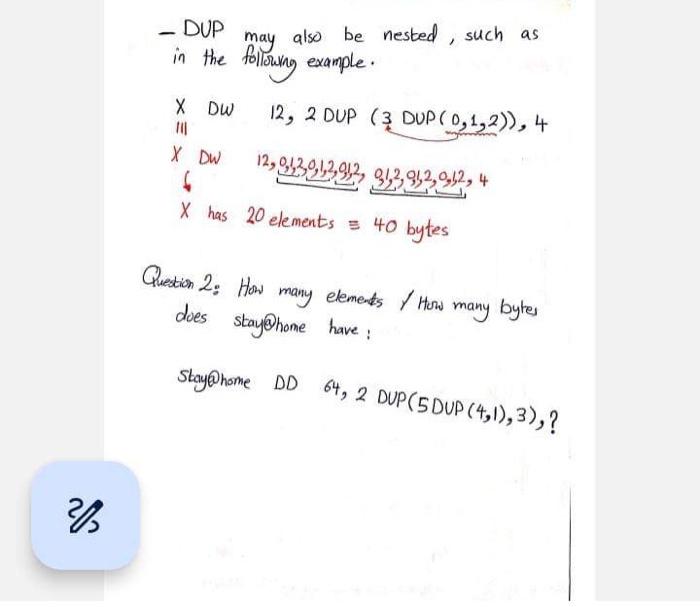 - DUP may also be nested, such as
in the following example.
X DW 12, 2 DUP (3 DUP(0,1,2)), 4
|||
X DW 12, 0,1,2,0,1,2,0,1,2, 0,1,2,0,1,2,0,1,2, 4
X has 20 elements ≡ 40 bytes
Question 2: How many elements / How many bytes
does stay@home have :
Stay@home DD 64, 2 DUP(5DUP(4,1),3),?